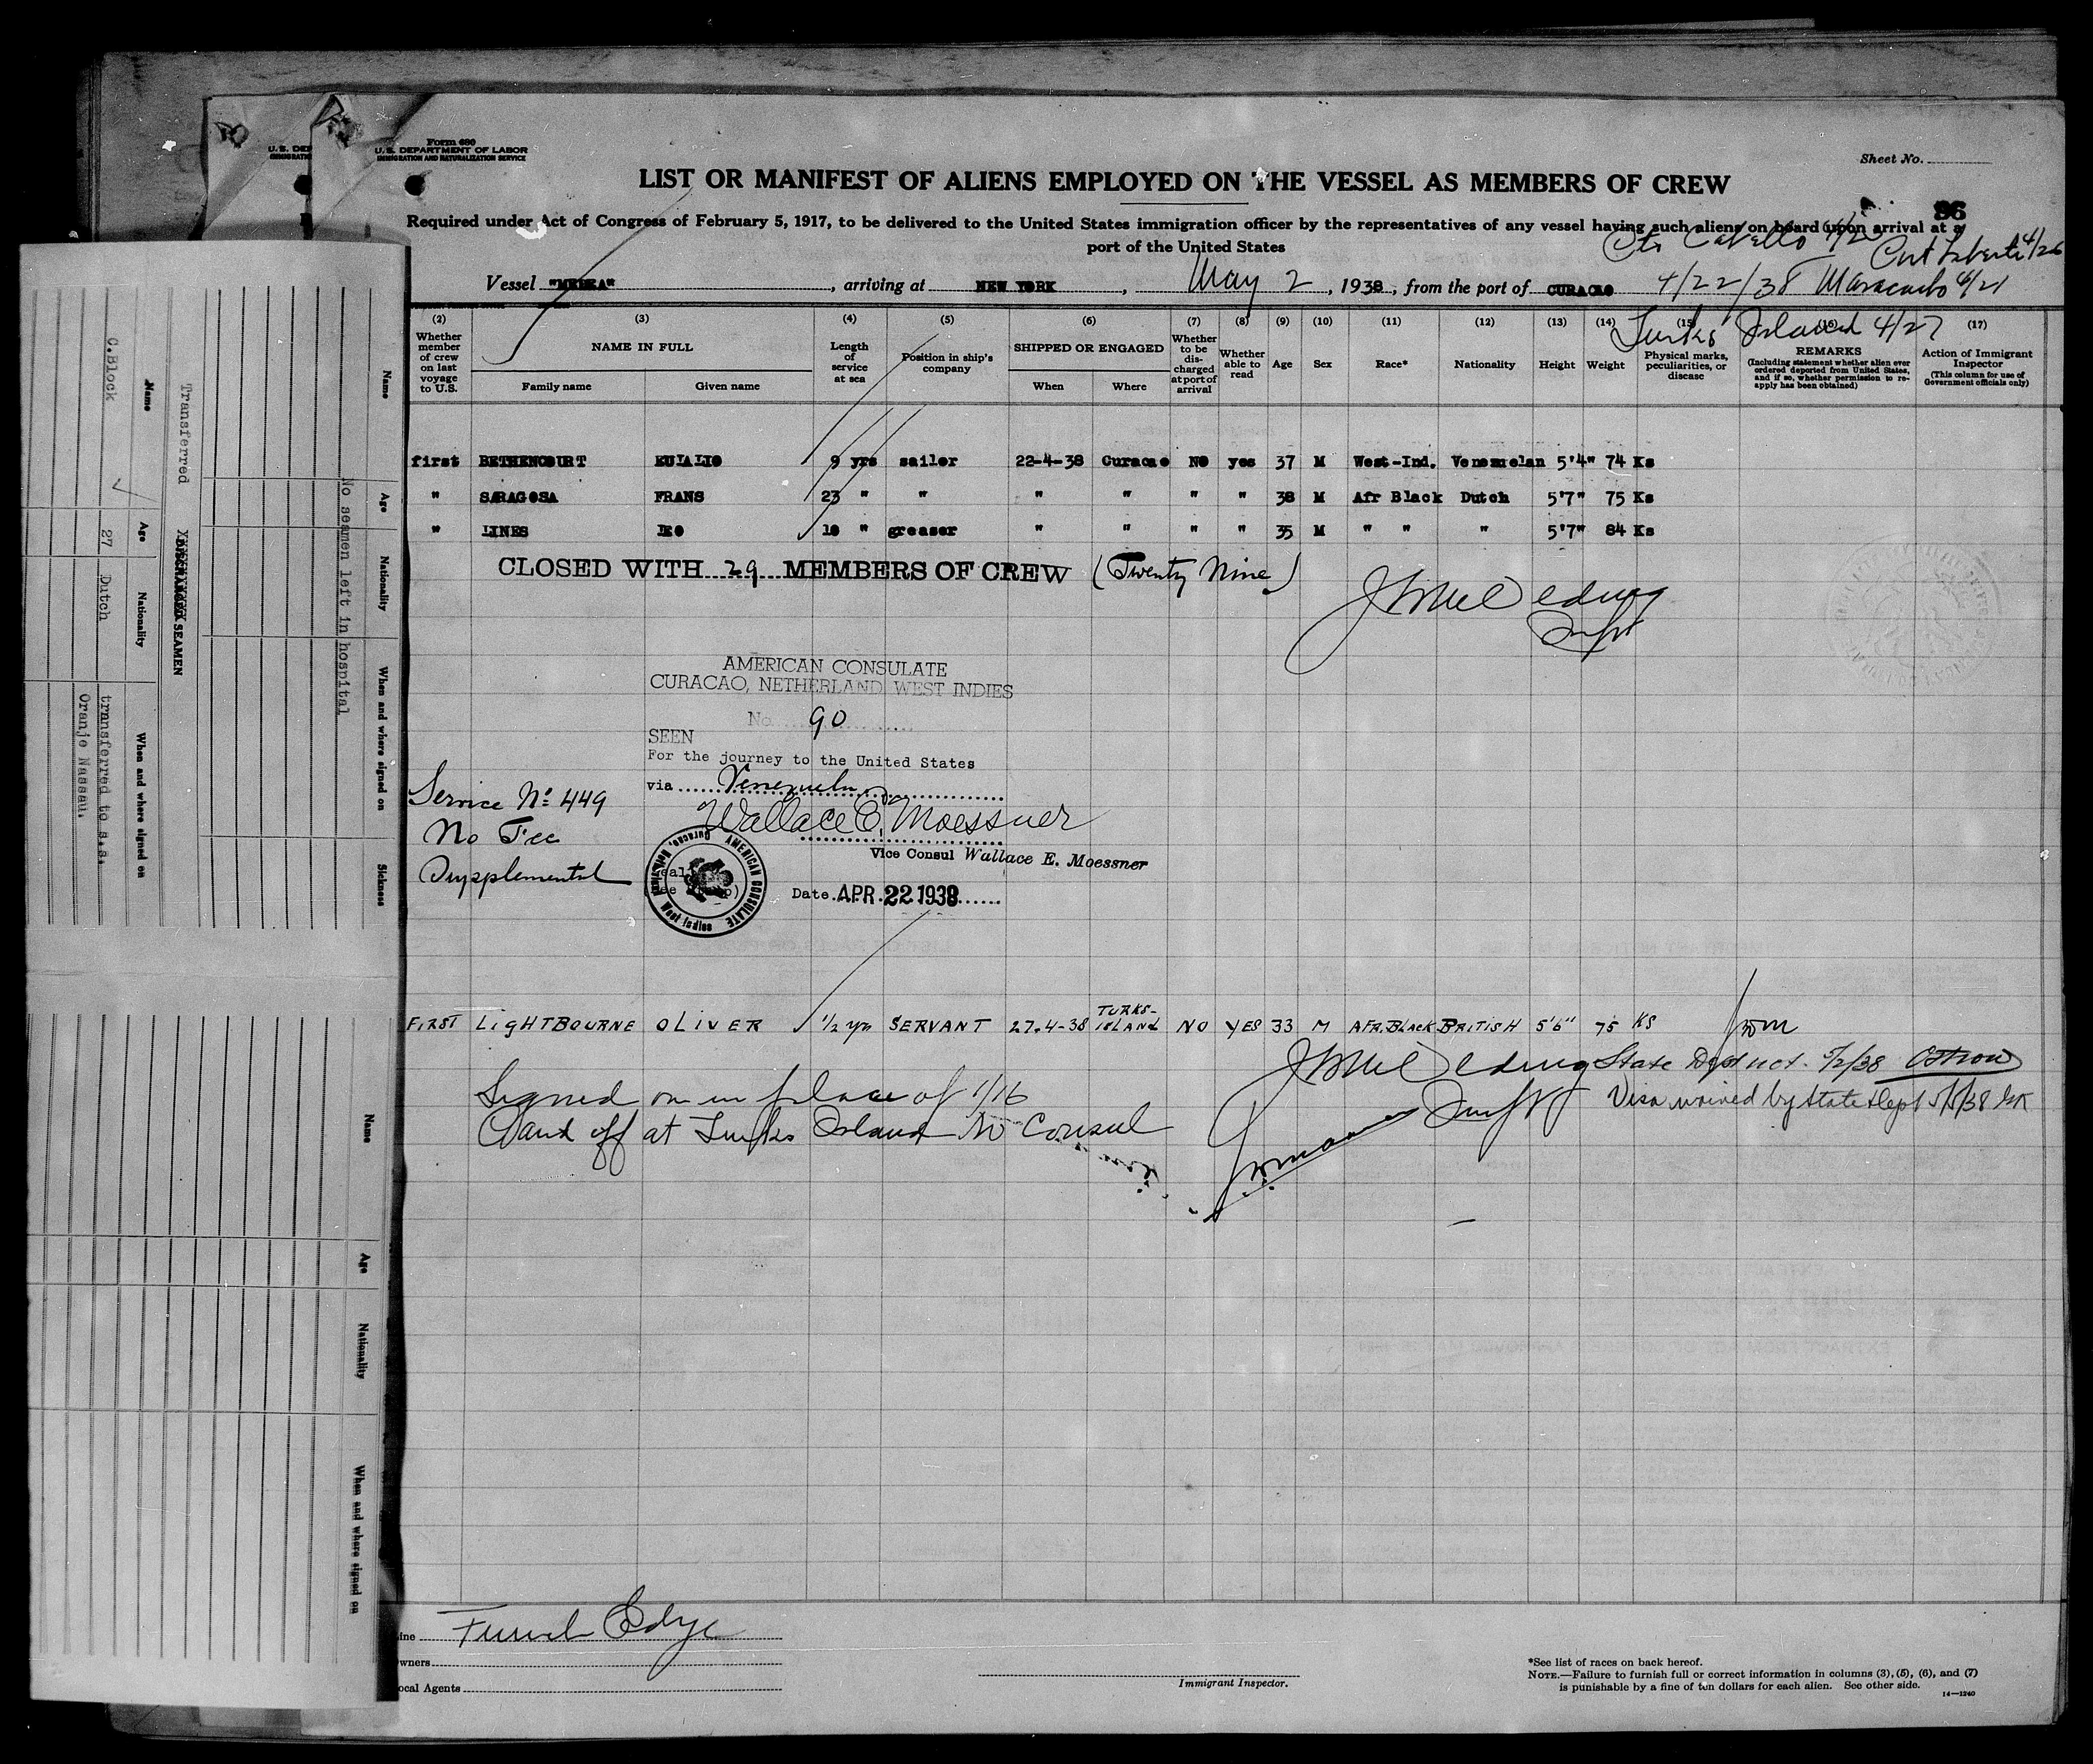 Form 680
U. S. DEPARTMENT OF LABOR
IMMIGRATION AND NATURALIZATION SERVICE
U. S. DEP
IMMIGRATIO
Sheet No.
LIST OR MANIFEST OF ALIENS EMPLOYED ON THE VESSEL AS MEMBERS OF CREW
96
Required under Act of Congress of February 5, 1917, to be delivered to the United States immigration officer by the representatives of any vessel having such aliens on board upon arrival at a
port of the United States
Pto Cabello
4/26
Vessel "MEDEA", arriving at NEW YORK, May 2, 1938, from the port of CURACAO 4/22/38 Maracaibo
Turks Island 4/27
(2) (3) (4) (5) (6) (7) (8) (9) (10) (11) (12) (13) (14) (15) (16) (17)
Whether member of crew on last voyage to U.S.
NAME IN FULL
Family name
Given name
Length of service at sea
Position in ship's company
SHIPPED OR ENGAGED
When
Where
Whether to be discharged at port of arrival
Whether able to read
Age
Sex
Race*
Nationality
Height
Weight
Physical marks, peculiarities, or disease
REMARKS
(Including statement whether alien ever ordered deported from United States, and if so, whether permission to reapply has been obtained)
Action of Immigrant Inspector
(This column for use of Government officials only)
first BETHENCOURT EULALIO 9 yrs sailor 22-4-38 Curacao NO yes 37 M West-Ind. Venezuelan 5'4" 74 Ks
" SARAGOSA FRANS 23 " " " " " " 38 M Afr Black Dutch 5'7" 75 Ks
" LINES LEO 10 " greaser " " " " 35 M " " " 5'7" 84 Ks
CLOSED WITH 29 MEMBERS OF CREW (Twenty Nine)
AMERICAN CONSULATE
CURACAO, NETHERLAND WEST INDIES
No. 90
SEEN
For the journey to the United States
via Venezuela
Wallace E. Moessner
Vice Consul Wallace E. Moessner
Date APR 22 1938
Service No. 449
No Fee
Supplemental
AMERICAN CONSULATE
West Indies
FIRST LIGHTBOURNE OLIVER 1/2 yr SERVANT 27-4-38 TURKS-ISLAND NO YES 33 M AFR.BLACK BRITISH 5'6" 75 KS
State Dept not. 5/2/38
Visa waived by State Dept 5/5/38
Signed on in place of 1/16
Paid off at Turks Island No Consul
Line Funch Edye
Owners
Local Agents
Immigrant Inspector.
*See list of races on back hereof.
NOTE.—Failure to furnish full or correct information in columns (3), (5), (6), and (7)
is punishable by a fine of ten dollars for each alien. See other side.
14—1240
Name Age Nationality When and where signed on Sickness
No seamen left in hospital
Transferred SEAMEN
Name Age Nationality When and where signed on
C.Block 27 Dutch transferred to s.s.
Oranje Nassau.
Name Age Nationality When and where signed on